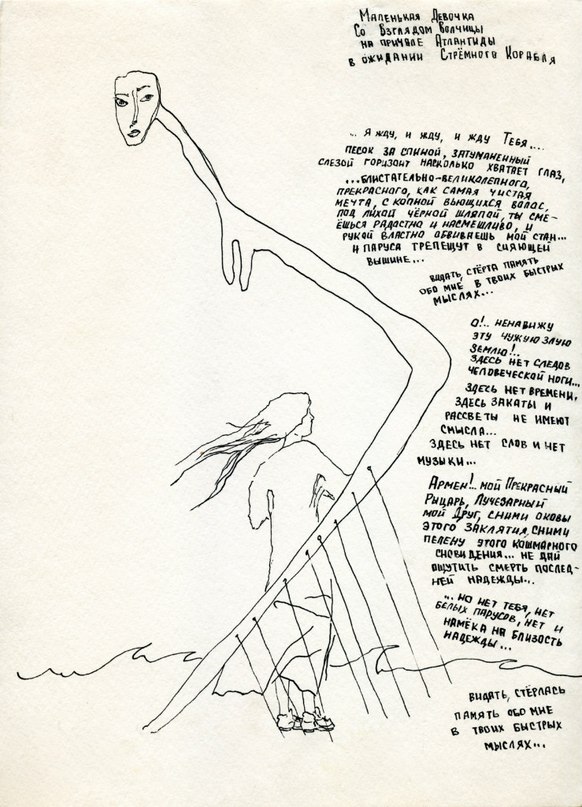 Маленькая Девочка
Со Взглядом Волчицы
на причале Атлантиды
в ожидании Стрёмного Корабля
... Я жду, и жду, и жду Тебя....
песок за спиной, затуманенный
слезой горизонт насколько хватает глаз,
...блистательно-великолепного,
прекрасного, как самая чистая
мечта, с копной вьющихся волос,
под лихой чёрной шляпой, ты сме-
ёшься радостно и насмешливо, и
рукой властно обвиваешь мой стан...
и паруса трепещут в сияющей
вышине...
видать, стёрта память
обо мне в твоих быстрых
мыслях...
О!.. ненавижу
эту чужую злую
землю!..
здесь нет следов
человеческой ноги...
здесь нет времени,
здесь закаты и
рассветы не имеют
смысла...
здесь нет слов и нет
музыки...
Армен!.. мой Прекрасный
Рыцарь, Лучезарный
мой Друг, сними оковы
этого заклятия, сними
пелену этого кошмарного
сновидения... не дай
ощутить смерть послед-
ней надежды...
... но нет тебя, нет
белых парусов, нет и
намёка на близость
надежды...
видать, стёрлась
память обо мне
в твоих быстрых
мыслях...